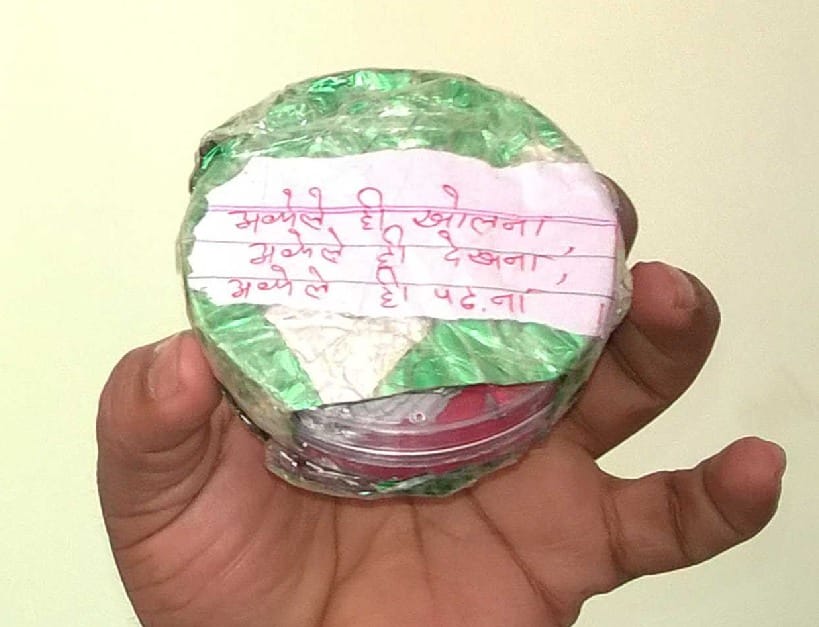 अकेले ही खोलना
अकेले ही देखना,
अकेले ही पढ़ना,